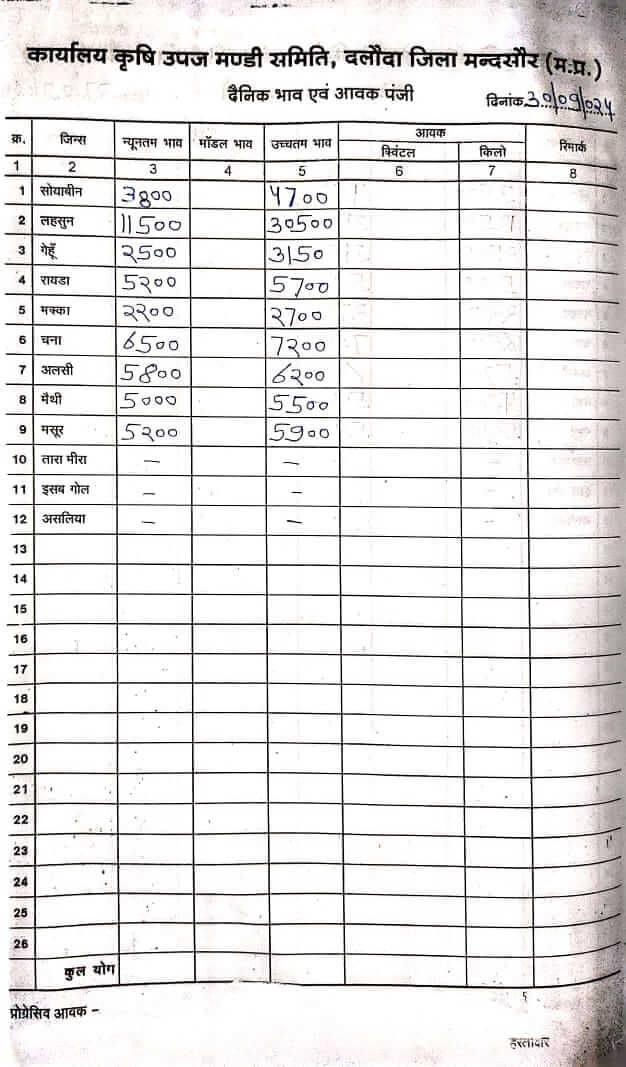 कार्यालय कृषि उपज मण्डी समिति, दलौदा जिला मन्दसौर (म.प्र.)
दैनिक भाव एवं आवक पंजी
दिनांक 30/09/024
क्र. जिन्स न्यूनतम भाव मॉडल भाव उच्चतम भाव आवक रिमार्क
क्विंटल किलो
1 2 3 4 5 6 7 8
1 सोयाबीन 3800 4700
2 लहसुन 11500 30500
3 गेहूँ २500 3150
4 रायडा 5२00 5700
5 मक्का २२00 २700
6 चना 6500 7२00
7 अलसी 5800 6२00
8 मैथी 5000 5500
9 मसूर 5२00 5900
10 तारा मीरा — —
11 इसब गोल — —
12 असलिया — —
13
14
15
16
17
18
19
20
21
22
23
24
25
26
कुल योग
प्रोग्रेसिव आवक -
हस्ताक्षर